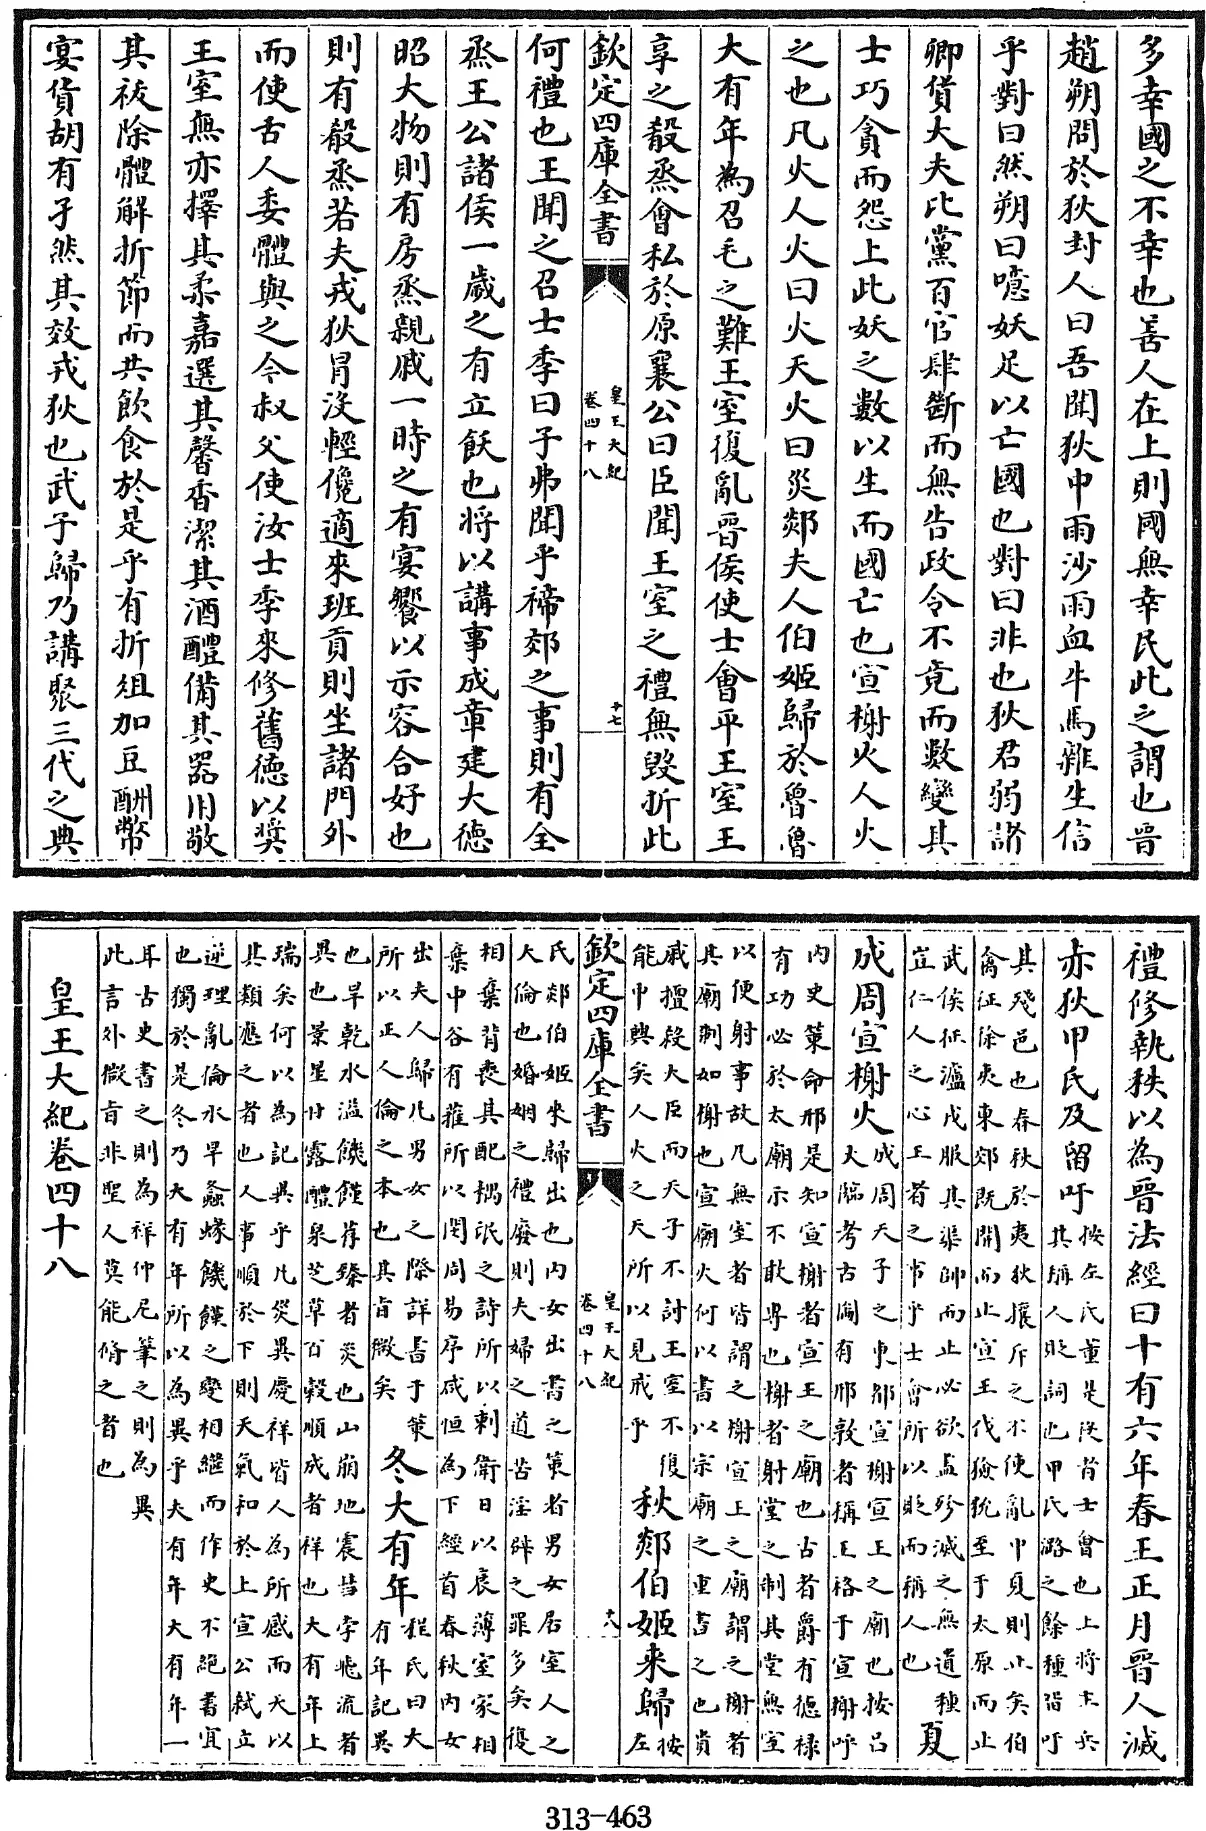 多幸國之不幸也善人在上則國無幸民此之謂也晉
趙朔問於狄封人曰吾聞狄中雨沙雨血牛馬雜生信
乎對曰然朔曰噫妖足以亡國也對曰非也狄君弱諸
卿貨大夫比黨百官肆斷而無告政令不竟而數變其
士巧貪而怨上此妖之數以生而國亡也宣榭火人火
之也凡火人火曰火天火曰災郯夫人伯姬歸於魯魯
大有年為召毛之難王室復亂晉侯使士會平王室王
享之殽烝會私於原襄公曰臣聞王室之禮無毀折此
欽定四庫全書
皇王大紀
卷四十八
十七
何禮也王聞之召士季曰子弗聞乎禘郊之事則有全
烝王公諸侯一歲之有立飫也將以講事成章建大德
昭大物則有房烝親戚一時之有宴饗以示容合好也
則有殽烝若夫戎狄冐没輕儳適來班貢則坐諸門外
而使舌人委體與之今叔父使汝士季來修舊德以奨
王室無亦擇其柔嘉選其馨香潔其酒醴備其器用敬
其祓除體解折節而共飲食於是乎有折俎加豆酬幣
宴貨胡有孑然其效戎狄也武子歸乃講聚三代之典
禮修執秩以為晉法經曰十有六年春王正月晉人滅
赤狄甲氏及留吁
按左氏董是役者士會也上將主兵
其稱人貶詞也甲氏潞之餘種留吁
其殘邑也春秋於夷狄攘斥之不使亂中夏則止矣伯
禽征徐夷東郊既開而止宣王伐玁狁至于太原而止
武侯征瀘戎服其渠帥而止必欲盡殄滅之無遺種
豈仁人之心王者之事乎士會所以貶而稱人也
夏
成周宣榭火
成周天子之東都宣榭宣王之廟也按呂
大臨考古圖有郉敦者稱王格于宣榭呼
内史策命郉是知宣榭者宣王之廟也古者爵有德禄
有功必於太廟示不敢專也榭者射堂之制其堂無室
以便射事故凡無室者皆謂之榭宣王之廟謂之榭者
其廟制如榭也宣廟火何以書以宗廟之重書之也貴
戚擅殺大臣而天子不討王室不復
能中興矣人火之天所以見戒乎
秋郯伯姬來歸
按
左
欽定四庫全書
皇王大紀
卷四十八
十八
氏郯伯姬來歸出也内女出書之策者男女居室人之
大倫也婚姻之禮廢則夫婦之道苦淫辟之罪多矣復
相棄背喪其配耦氓之詩所以刺衛日以衰薄室家相
棄中谷有蓷所以閔周易序咸恒為下經首春秋内女
出夫人歸凡男女之際詳書于策
所以正人倫之本也其旨微矣
冬大有年
程氏曰大
有年記異
也旱乾水溢饑饉荐臻者災也山崩地震彗孛飛流者
異也景星甘露醴泉芝草百穀順成者祥也大有年上
瑞矣何以為記異乎凡災異慶祥皆人為所感而天以
其類應之者也人事順於下則天氣和於上宣公弑立
逆理亂倫水旱螽蝝饑饉之變相繼而作史不絶書宜
也獨於是冬乃大有年所以為異乎夫有年大有年一
耳古史書之則為祥仲尼筆之則為異
此言外微旨非聖人莫能脩之者也
皇王大紀卷四十八
313-463